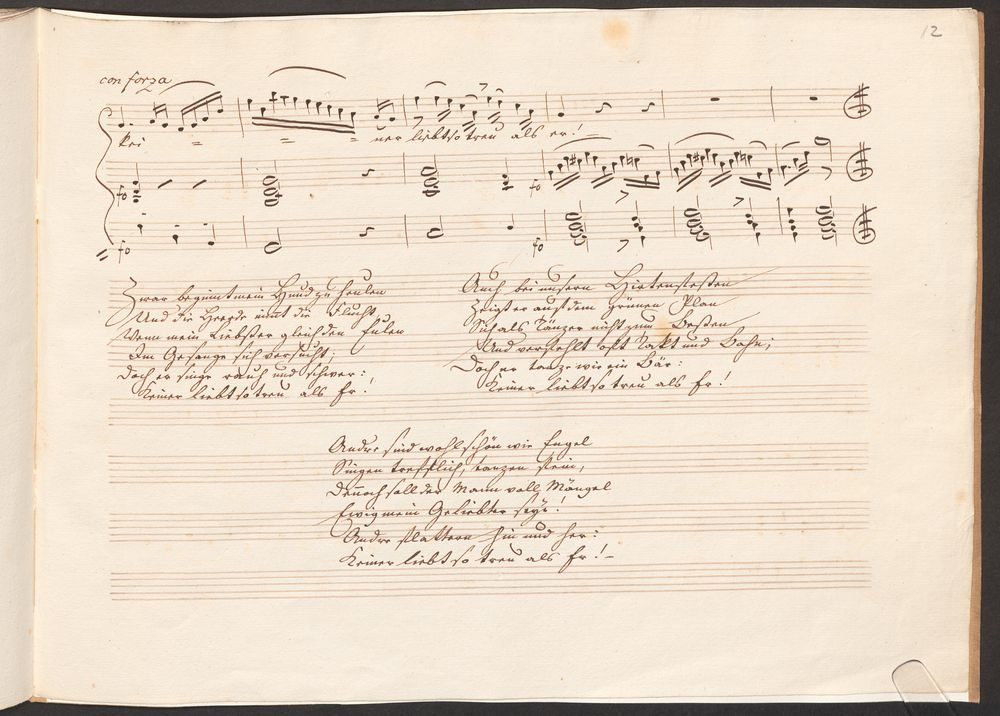 12
con forza
kei = = = ner liebt so treu als er! –
fo fo
fo fo
Zwar beginnt mein Hund zu heulen
Und die Heerde nimt die Flucht,
Wenn mein Liebster gleich den Eulen
Im Gesange sich versucht;
Doch er singe rauh und schwer:
Keiner liebt so treu als Er!
Auch bei unsern Hirtenfesten
Zeigt er auf dem grünen Plan
Sich als Tänzer nicht zum Besten
Und verfehlt oft Takt und Bahn;
Doch er tanze wie ein Bär:
Keiner liebt so treu als Er!
Andre sind wohl schön wie Engel
Singen trefflich, tanzen fein,
Dennoch soll der Mann voll Mängel
Ewig mein Geliebter seyn!
Andre flattern hin und her:
Keiner liebt so treu als Er! –